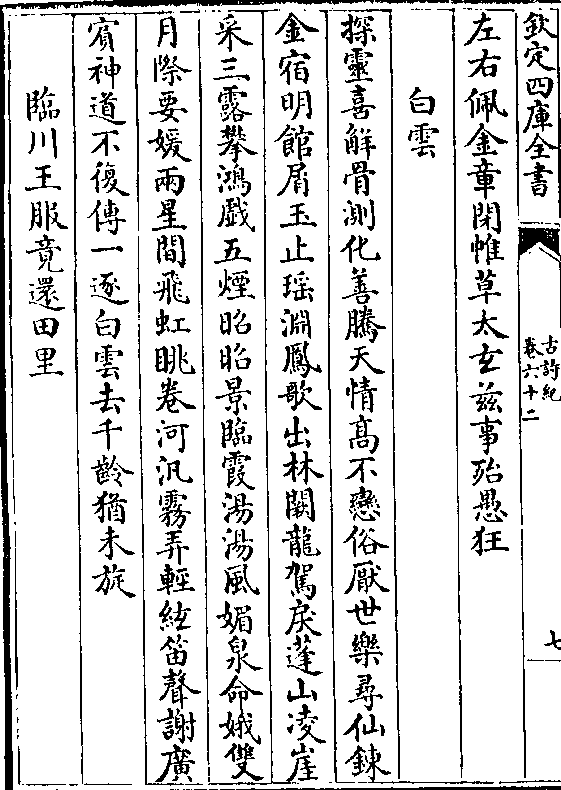 欽定四庫全書
古詩紀
卷六十二
七
左右佩金章閉帷草太玄兹事殆愚狂
白雲
探靈喜解骨測化善騰天情髙不戀俗厭世樂尋仙鍊
金宿明館屑玉止瑶淵鳳歌出林闕龍駕戾蓬山凌崖
采三露攀鴻戲五煙昭昭景臨霞湯湯風媚泉命娥雙
月際要媛兩星間飛虹眺卷河汎霧弄輕絃笛聲謝廣
賔神道不復傳一逐白雲去千齡猶未旋
臨川王服竟還田里